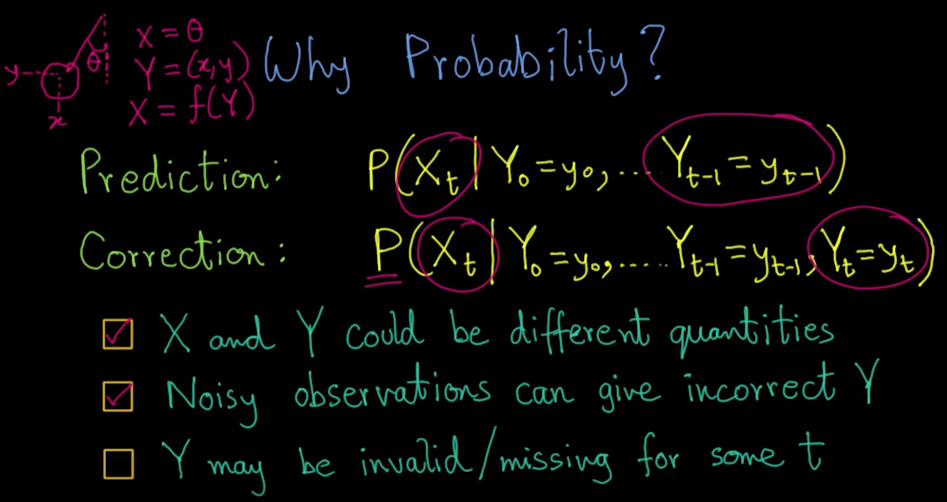 X = θ
Y = (x,y)
X = f(Y)
θ
y
x
Why Probability?
Prediction: P(X_t | Y_0 = y_0, .... Y_{t-1} = y_{t-1})
Correction: P(X_t | Y_0 = y_0, ..... Y_{t-1} = y_{t-1}, Y_t = y_t)
X and Y could be different quantities
Noisy observations can give incorrect Y
Y may be invalid/missing for some t